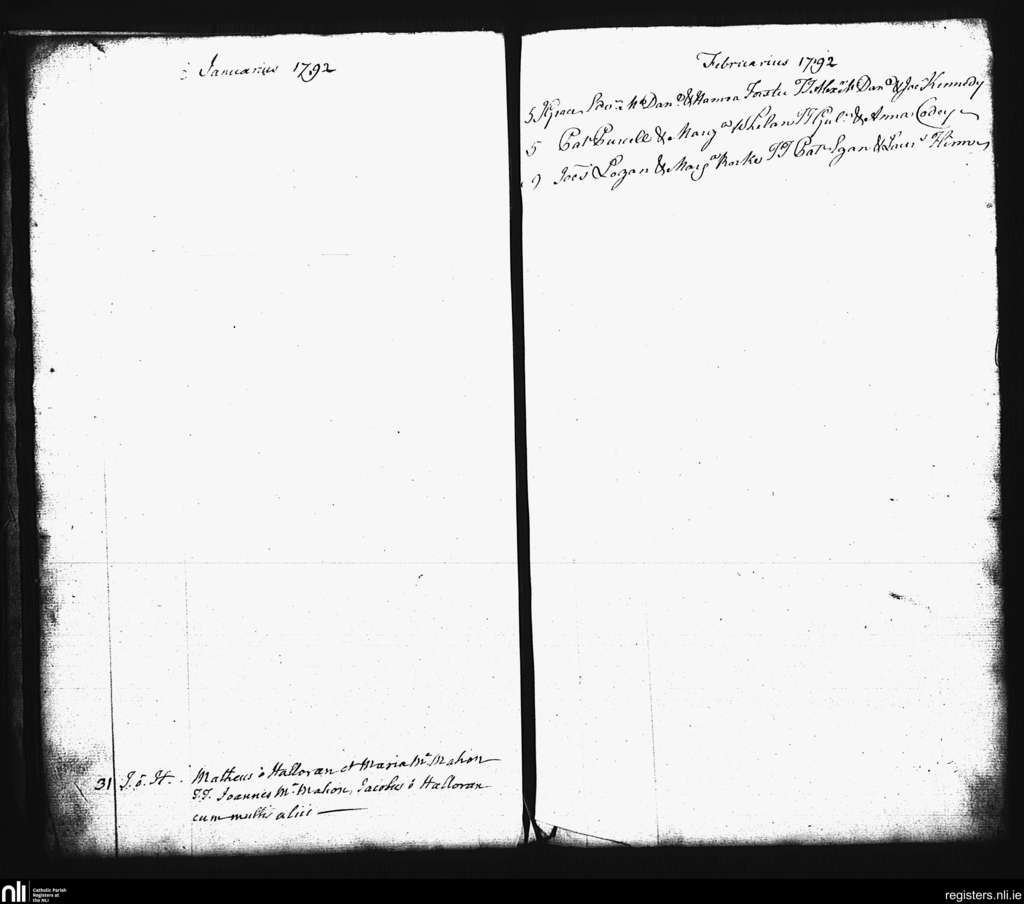 Januarius 1792
31 J. ó. H. Matheus ó Halloran et Maria Mc Mahon
T.T. Joannes Mc Mahon, Jacobus ó Halloran
cum multis aliis
Februarius 1792
5 Mc Dan & Hanora Forster TT & Jac Kennedy
5 Patt Purcell & Marga Whelan TT Gul & Anna Codey
9 Joēs Logan & Marga Rorke TT Patt Egan & Laurs
nli Catholic Parish
Registers at
the NLI
registers.nli.ie